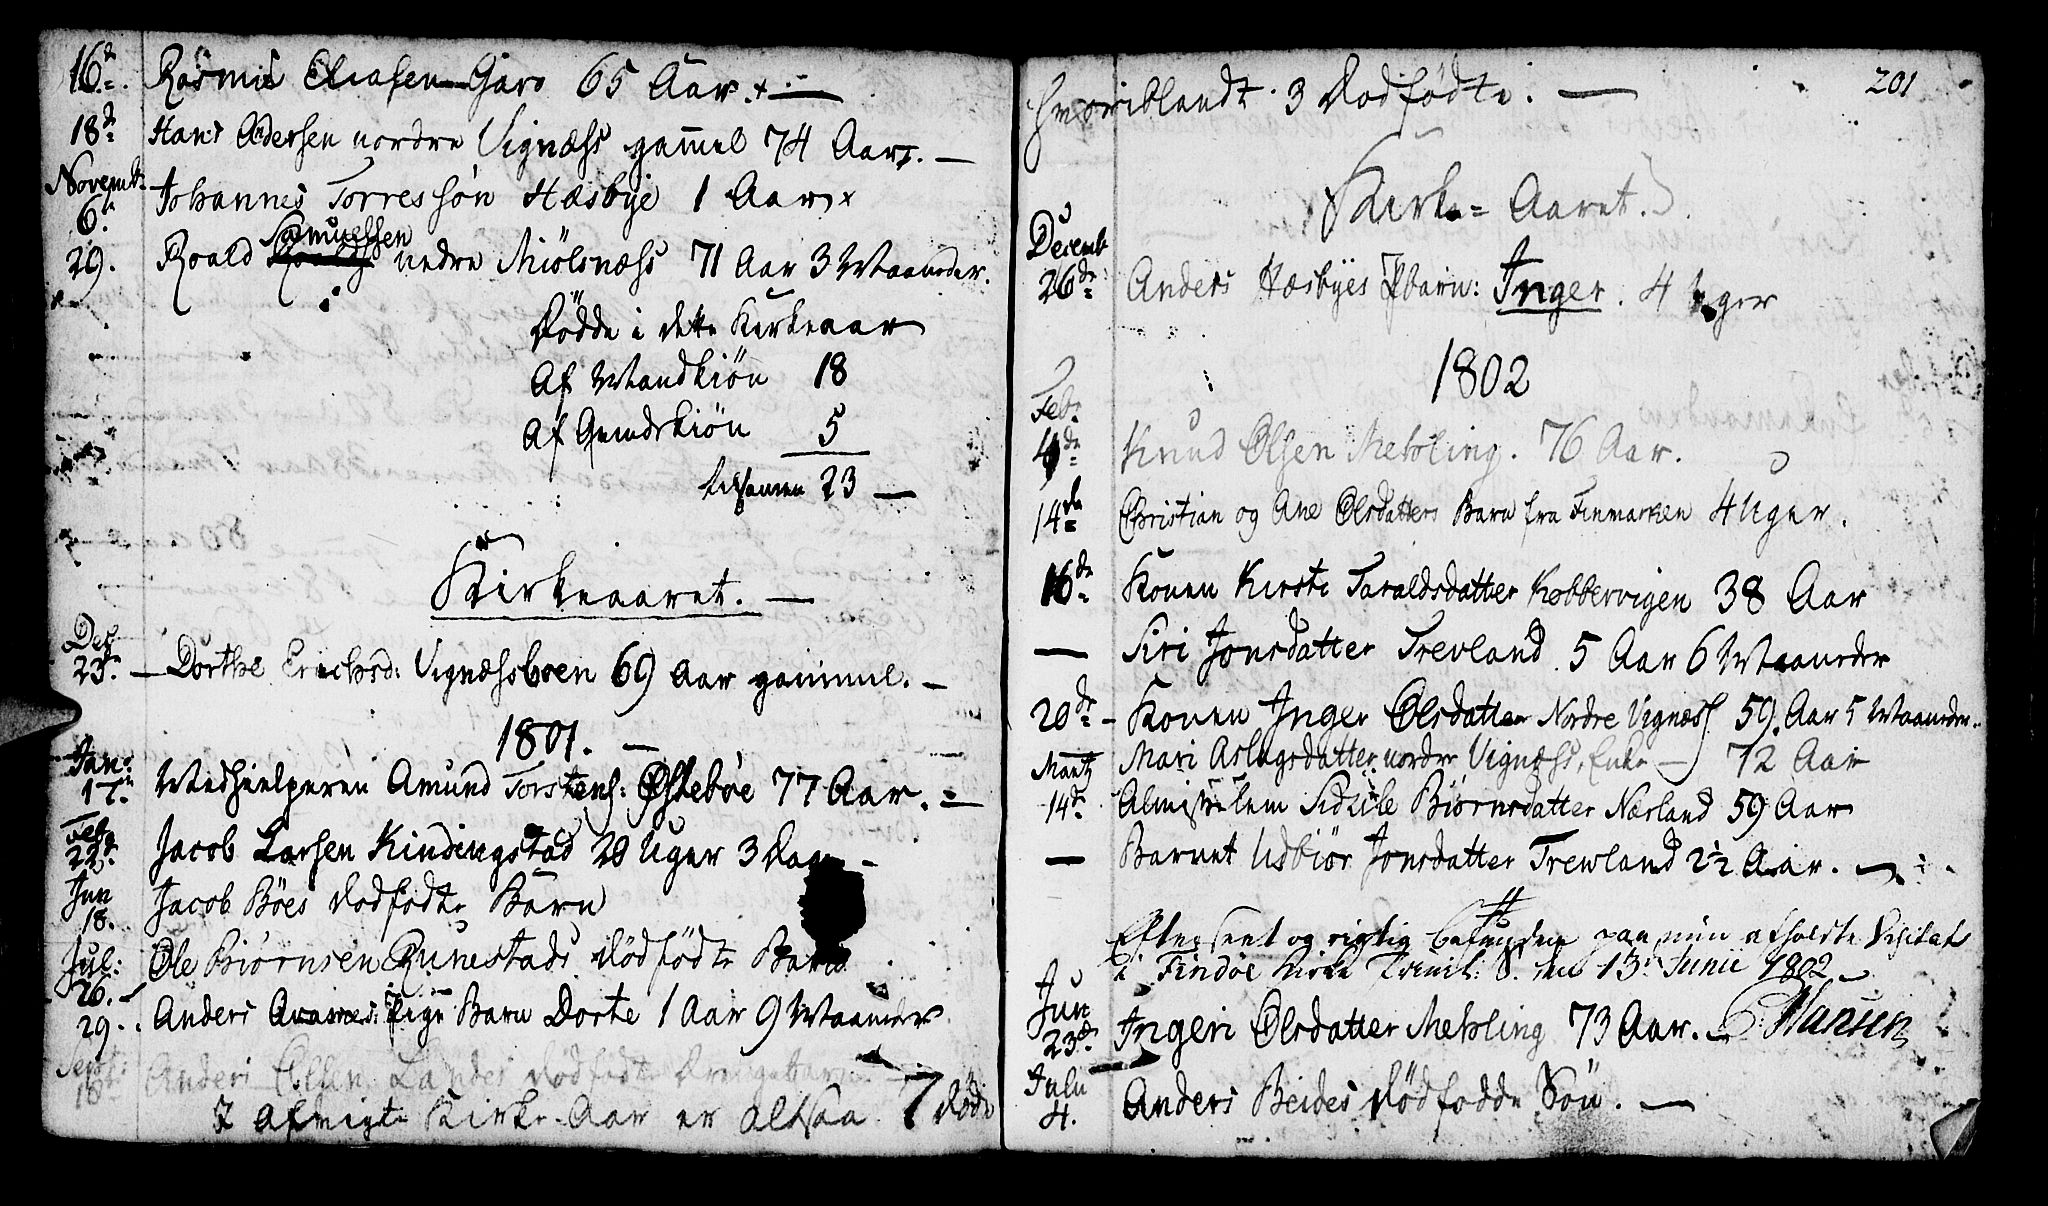 16de Rasmus Eliasen Garo 65 Aar. x —
18de Hans Andersen nordre Vignæss gammel 74 Aar. —
Novembr
6te Johannes Torressøn Hæsbye 1 Aar x
Samuelsen
29. Roald nedre Miølsnæss 71 Aar 3 Maaneder.
Dödde i dette Kirkeaar
Af Mandkiön 18
Af Qvindekiön 5
tilsamen 23 —
Kirkeaaret. —
Des
23de — Dorthe Erichsd: Vignæssboen 69 Aar gammel. —
1801. —
Jan:
17de Medhielperen Amund Torstens: Østebøe 77 Aar. —
Feb
22de Jacob Larsen Kindingstad 20 Uger 3 Dage —
Jun
18. Jacob Böes dodfödte Barn
Jul:
26. — Ole Biørnsen Runestads dödfödte Barn
29. Anders Pige Barn Dorte 1 Aar 9 Maaneder
Sept:
18de Anders Olsen Landes dodfödte Drengebarn. —
I afvigte Kirke-Aar er altsaa 7 döde
201
hvoriblandt 3 Dodfödte. —
Kirke-Aaret.
Decemb
26de Anders Hæsbyes Pbarn: Inger. 4 Uger
1802
Feb:
4de Knud Olsen Mehling. 76 Aar.
14de Christian og Ane Olsdatters Barn fra Finmarken 4 Uger.
16de Konen Kirsti Taraldsdatter Kobbervigen 38 Aar
— Siri Jonsdatter Trevland 5 Aar 6 Maaneder
20de — Konen Inger Olsdatter Nordre Vignæss 59 Aar 5 Maaneder.
Martz Mari Aslagsdatter nordre Vignæss, Enke — 72 Aar
14de Almisselem Sidsele Biørnsdatter Nærland 59 Aar
— Barnet Udbiør Jonsdatter Trevland 2 1/2 Aar. —
Efterseet og rigtig befunden paa min afholdte Visitats
i Findöe Kirke Trinit: S. den 13de Junii 1802. —
P. Hansen
Jun
23de Ingeri Olsdatter Mehling 73 Aar. —
Julii
4. Anders Reides dödfödde Sön. —